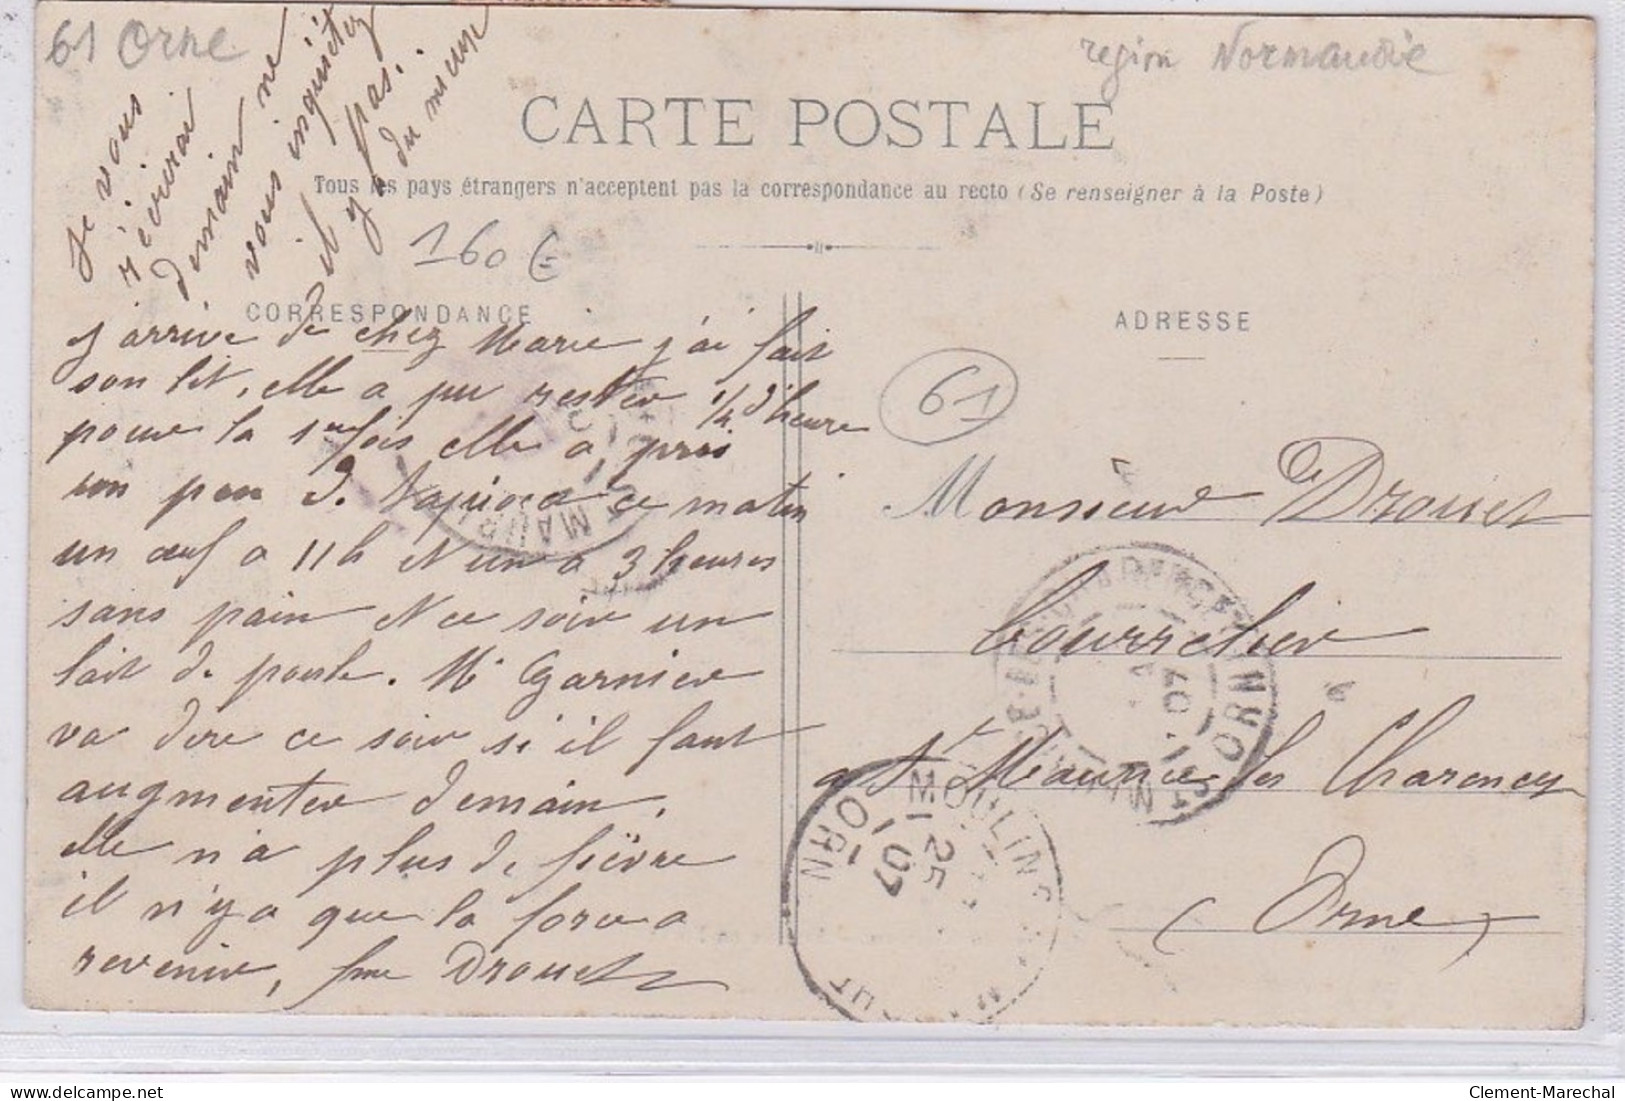 61 Orne
region Normandie
Je vous
r'écrirai
demain ne
vous inquiétez
pas.
il y a du mieux
CARTE POSTALE
Tous les pays étrangers n'acceptent pas la correspondance au recto (Se renseigner à la Poste)
160 €
CORRESPONDANCE
ADRESSE
j'arrive de chez Marie j'ai fait
son lit, elle a pu rester 1/4 d'heure
pour la 1ere fois elle a pris
un peu de Tapioca ce matin
un œuf a 11h et un a 3 heures
sans pain et ce soir un
lait de poule. Mr Garnier
va dire ce soir s'il faut
augmenter demain.
elle n'a plus de fièvre
il n'y a que la force a
revenir, fme Drouet
61
Monsieur Drouet
Bourrelier
a St Maurice les Charencey
(Orne)
MOULINS
25
07
ORNE
ST MAURICE
07
ORNE
ST MAURI
Clement-Marechal
delcampe.net